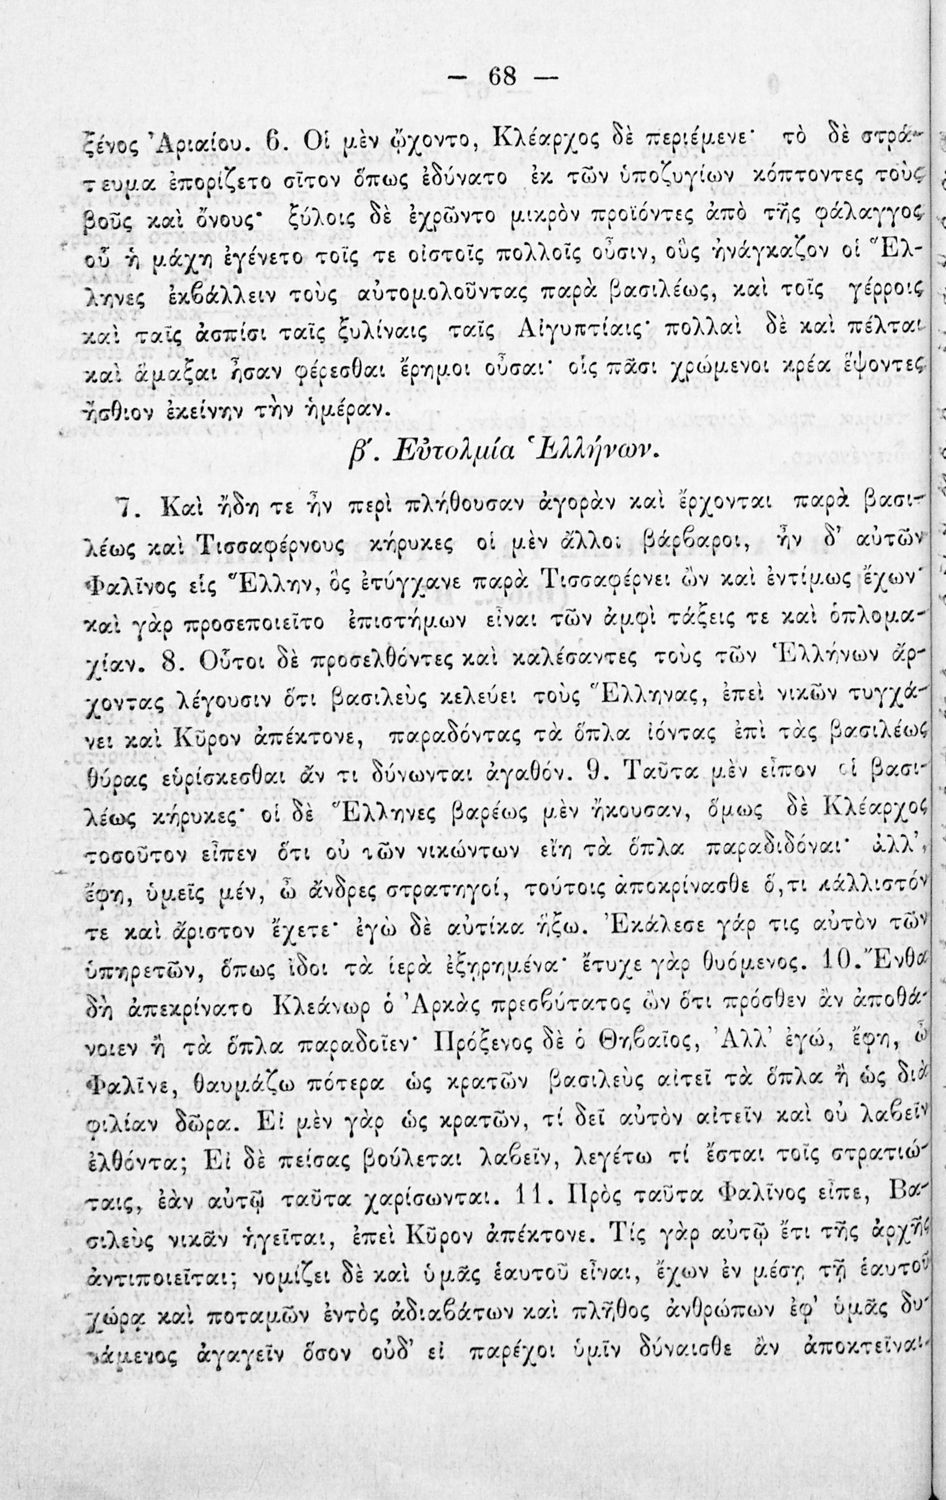 — 68 —
ξένος Ἀριαίου. 6. Οἱ μὲν ᾤχοντο, Κλέαρχος δὲ περιέμενε· τὸ δὲ στρά-
τευμα ἐπορίζετο σῖτον ὅπως ἐδύνατο ἐκ τῶν ὑποζυγίων κόπτοντες τοὺς
βοῦς καὶ ὄνους· ξύλοις δὲ ἐχρῶντο μικρὸν προϊόντες ἀπὸ τῆς φάλαγγος
οὗ ἡ μάχη ἐγένετο τοῖς τε οἰστοῖς πολλοῖς οὖσιν, οὓς ἠνάγκαζον οἱ Ἕλ-
ληνες ἐκβάλλειν τοὺς αὐτομολοῦντας παρὰ βασιλέως, καὶ τοῖς γέρροις
καὶ ταῖς ἀσπίσι ταῖς ξυλίναις ταῖς Αἰγυπτίαις· πολλαὶ δὲ καὶ πέλται
καὶ ἅμαξαι ἦσαν φέρεσθαι ἔρημοι οὖσαι· οἷς πᾶσι χρώμενοι κρέα ἕψοντες
ἤσθιον ἐκείνην τὴν ἡμέραν.
β′. Εὐτολμία Ἑλλήνων.
7. Καὶ ἤδη τε ἦν περὶ πλήθουσαν ἀγορὰν καὶ ἔρχονται παρὰ βασι-
λέως καὶ Τισσαφέρνους κήρυκες οἱ μὲν ἄλλοι βάρβαροι, ἦν δ' αὐτῶν
Φαλῖνος εἷς Ἕλλην, ὃς ἐτύγχανε παρὰ Τισσαφέρνει ὢν καὶ ἐντίμως ἔχων·
καὶ γὰρ προσεποιεῖτο ἐπιστήμων εἶναι τῶν ἀμφὶ τάξεις τε καὶ ὁπλομα-
χίαν. 8. Οὗτοι δὲ προσελθόντες καὶ καλέσαντες τοὺς τῶν Ἑλλήνων ἄρ-
χοντας λέγουσιν ὅτι βασιλεὺς κελεύει τοὺς Ἕλληνας, ἐπεὶ νικῶν τυγχά-
νει καὶ Κῦρον ἀπέκτονε, παραδόντας τὰ ὅπλα ἰόντας ἐπὶ τὰς βασιλέως
θύρας εὑρίσκεσθαι ἄν τι δύνωνται ἀγαθόν. 9. Ταῦτα μὲν εἶπον οἱ βασι-
λέως κήρυκες· οἱ δὲ Ἕλληνες βαρέως μὲν ἤκουσαν, ὅμως δὲ Κλέαρχος
τοσοῦτον εἶπεν ὅτι οὐ τῶν νικώντων εἴη τὰ ὅπλα παραδιδόναι· ἀλλ',
ἔφη, ὑμεῖς μέν, ὦ ἄνδρες στρατηγοί, τούτοις ἀποκρίνασθε ὅ,τι κάλλιστόν
τε καὶ ἄριστον ἔχετε· ἐγὼ δὲ αὐτίκα ἥξω. Ἐκάλεσε γάρ τις αὐτὸν τῶν
ὑπηρετῶν, ὅπως ἴδοι τὰ ἱερὰ ἐξῃρημένα· ἔτυχε γὰρ θυόμενος. 10. Ἔνθα
δὴ ἀπεκρίνατο Κλεάνωρ ὁ Ἀρκὰς πρεσβύτατος ὢν ὅτι πρόσθεν ἂν ἀποθά-
νοιεν ἢ τὰ ὅπλα παραδοῖεν· Πρόξενος δὲ ὁ Θηβαῖος, Ἀλλ' ἐγώ, ἔφη, ὦ
Φαλῖνε, θαυμάζω πότερα ὡς κρατῶν βασιλεὺς αἰτεῖ τὰ ὅπλα ἢ ὡς διὰ
φιλίαν δῶρα. Εἰ μὲν γὰρ ὡς κρατῶν, τί δεῖ αὐτὸν αἰτεῖν καὶ οὐ λαβεῖν
ἐλθόντα; Εἰ δὲ πείσας βούλεται λαβεῖν, λεγέτω τί ἔσται τοῖς στρατιώ-
ταις, ἐὰν αὐτῷ ταῦτα χαρίσωνται. 11. Πρὸς ταῦτα Φαλῖνος εἶπε, Βα-
σιλεὺς νικᾶν ἡγεῖται, ἐπεὶ Κῦρον ἀπέκτονε. Τίς γὰρ αὐτῷ ἔτι τῆς ἀρχῆς
ἀντιποιεῖται; νομίζει δὲ καὶ ὑμᾶς ἑαυτοῦ εἶναι, ἔχων ἐν μέσῃ τῇ ἑαυτοῦ
χώρᾳ καὶ ποταμῶν ἐντὸς ἀδιαβάτων καὶ πλῆθος ἀνθρώπων ἐφ' ὑμᾶς δυ-
νάμενος ἀγαγεῖν ὅσον οὐδ' εἰ παρέχοι ὑμῖν δύναισθε ἂν ἀποκτεῖναι.